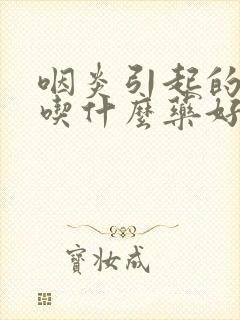 咽炎引起的
喫什麼藥好
寶妝成